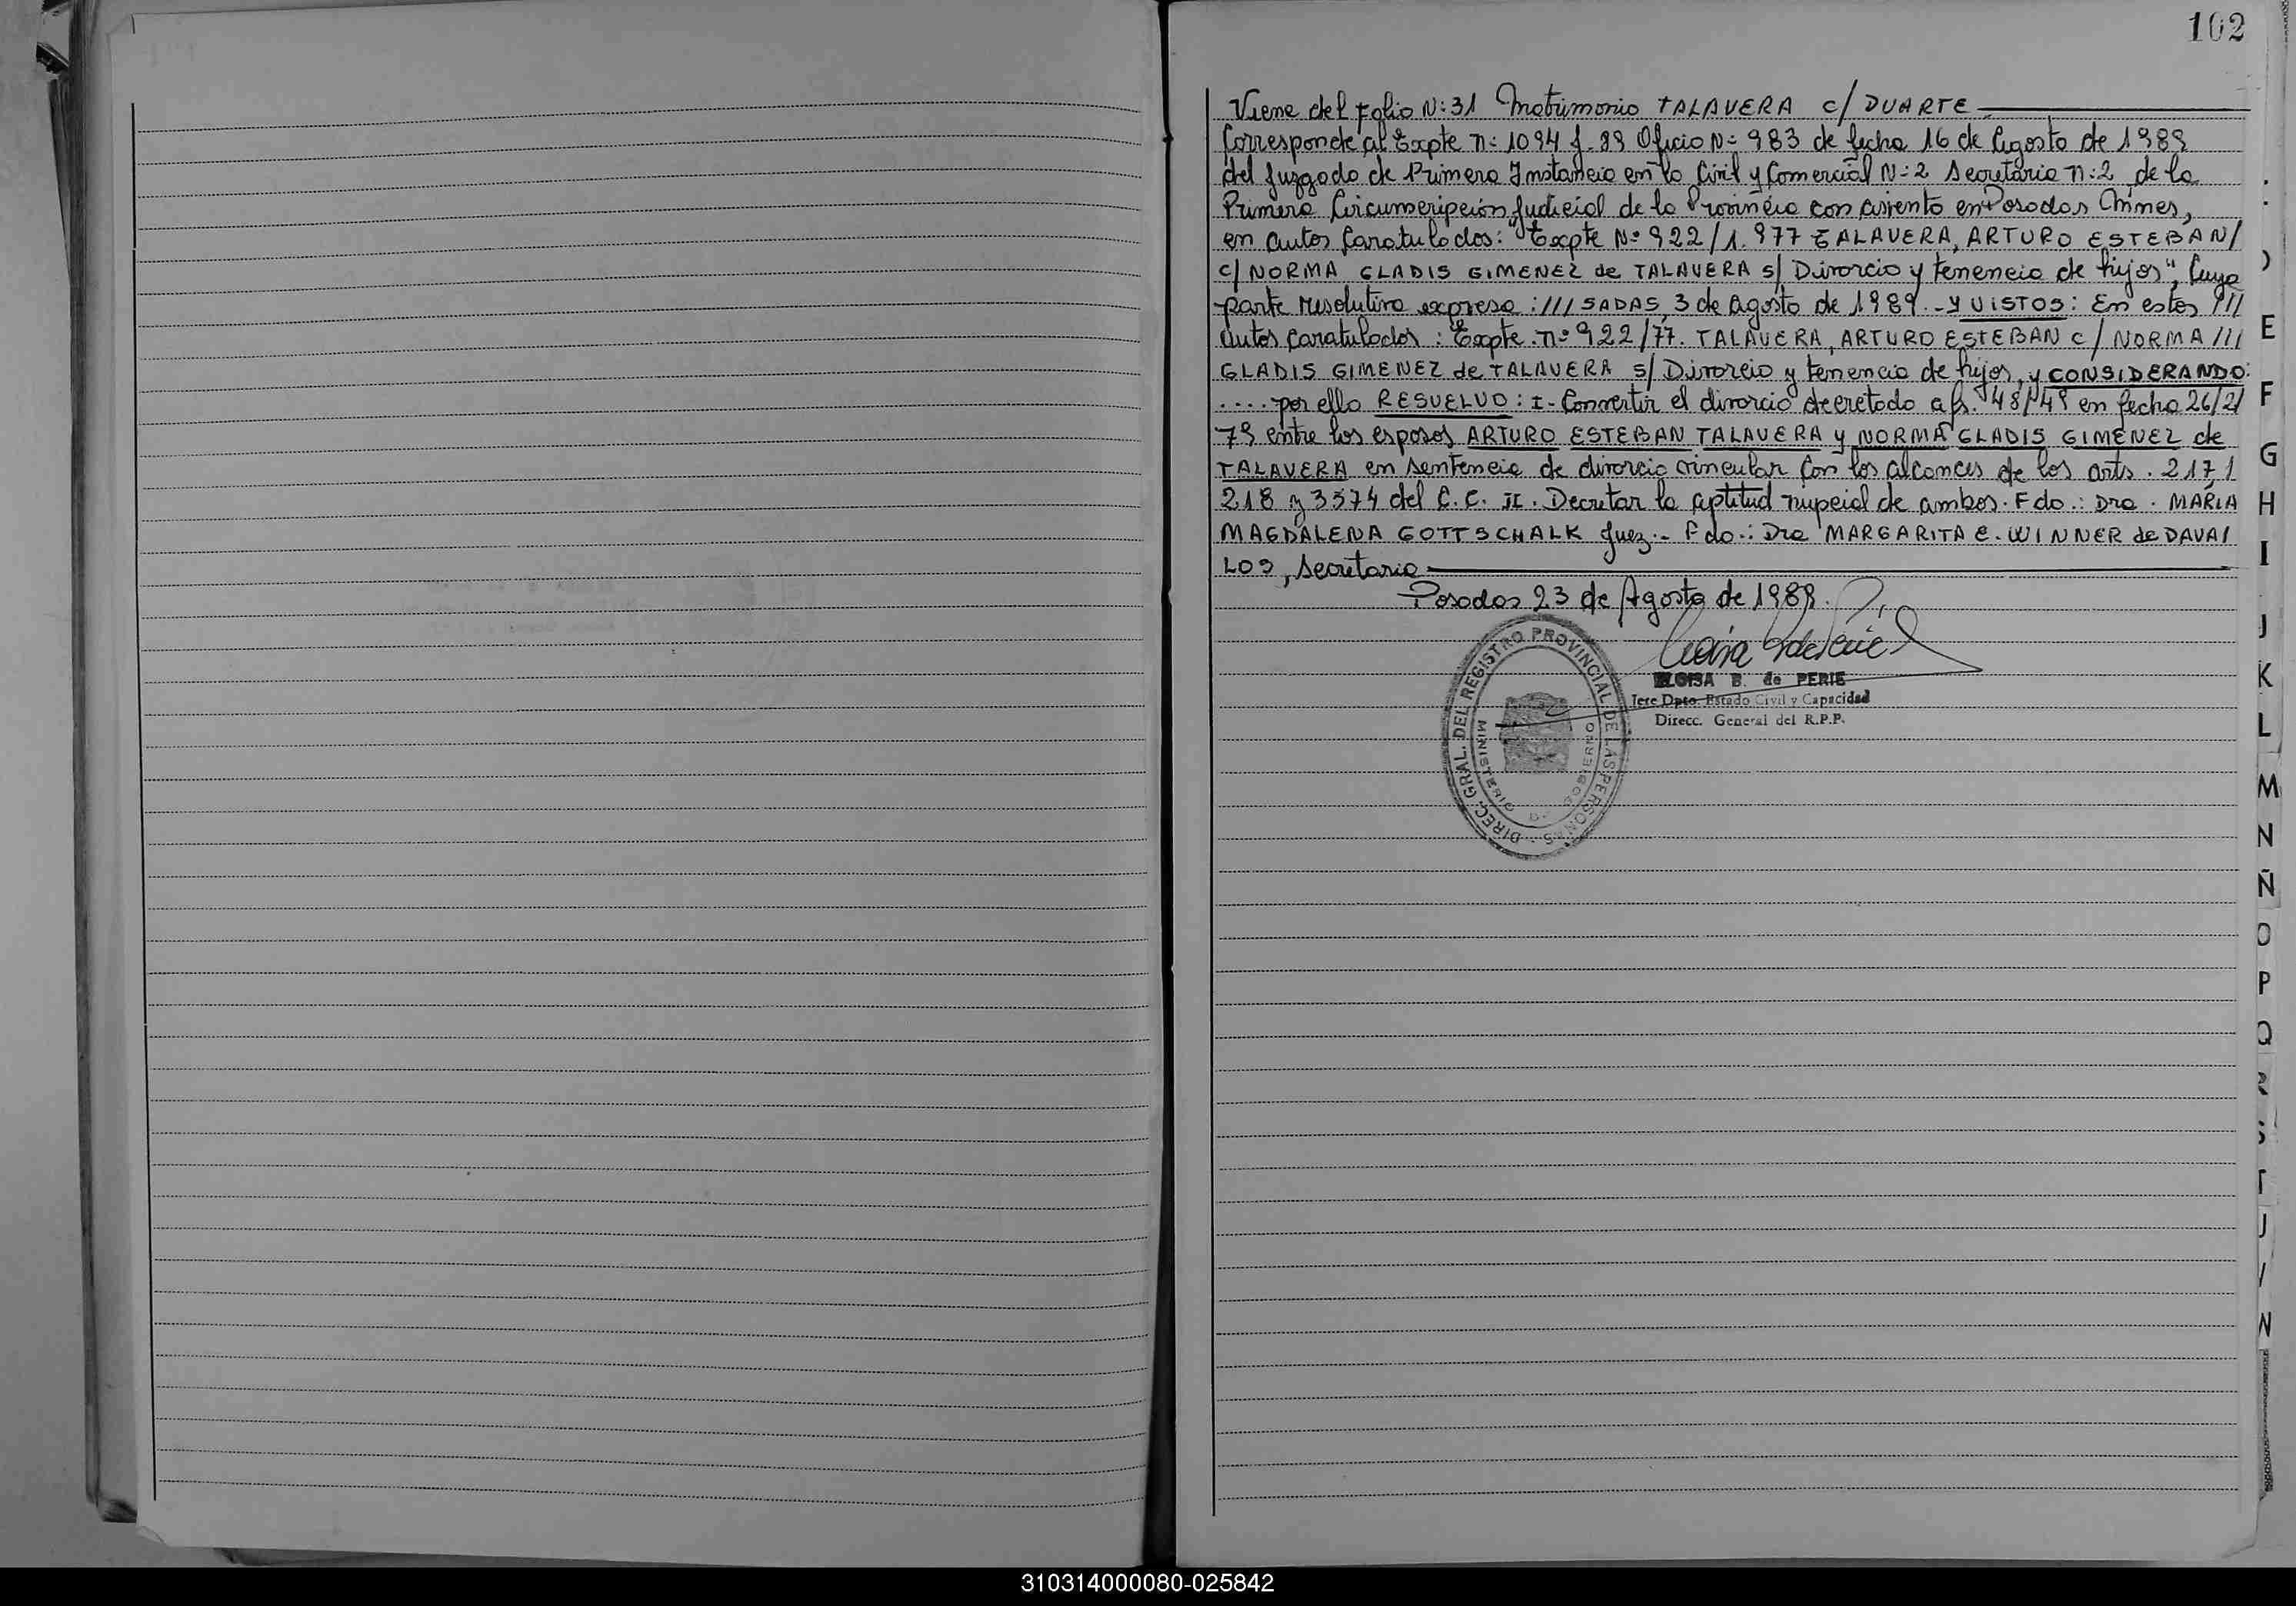 102
Viene del Folio N: 31 Matrimonio TALAVERA c/ DUARTE
Corresponde al Expte n: 1094 f- 89 Oficio N: 983 de fecha 16 de Agosto de 1989
del Juzgado de Primera Instancia en lo Civil y Comercial N: 2 Secretaria n: 2 de la
Primera Circunscripción Judicial de la Provincia con asiento en Posadas Mnes,
en autos Caratulados: "Expte No 922/1.977 TALAVERA, ARTURO ESTEBAN/
c/ NORMA GLADIS GIMENEZ de TALAVERA s/ Divorcio y tenencia de hijos", Cuya
parte resolutiva expresa: /// SADAS, 3 de Agosto de 1989.- Y VISTOS: En estos ///
Autos Caratulados: Expte. no 922/77. TALAVERA, ARTURO ESTEBAN c/ NORMA ///
GLADIS GIMENEZ de TALAVERA s/ Divorcio y tenencia de hijos, y CONSIDERANDO:
.... por ello RESUELVO: I- Convertir el divorcio decretado a fs. 48/49 en fecha 26/2/
79 entre los esposos ARTURO ESTEBAN TALAVERA y NORMA GLADIS GIMENEZ de
TALAVERA en sentencia de divorcio vincular Con los alcances de los arts. 217,
218 y 3574 del C.C. II. Decretar la aptitud nupcial de ambos. Fdo.: Dra. MARIA
MAGDALENA GOTTSCHALK Juez.- Fdo.: Dra MARGARITA E. WINNER de DAVA/
LOS, Secretaria
Posadas 23 de Agosto de 1989.
ELOISA B. de PERIE
Jefe Dpto. Estado Civil y Capacidad
Direcc. General del R.P.P.
DIREC. GRAL. DEL REGISTRO PROVINCIAL DE LAS PERSONAS
MINISTERIO DE GOBIERNO
E
F
G
H
I
J
K
L
M
N
Ñ
O
P
Q
R
S
T
U
V
W
310314000080-025842